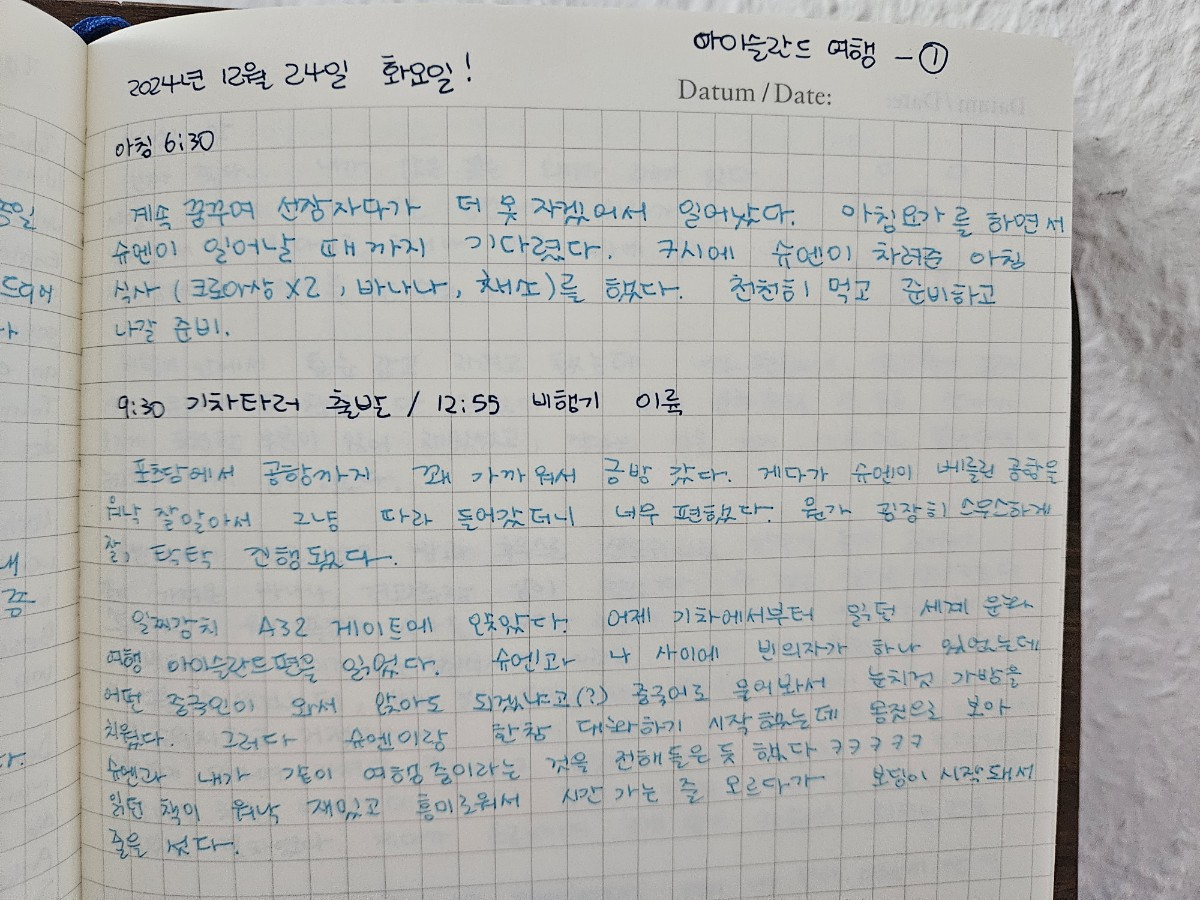 아이슬란드 여행 - ①
2024년 12월 24일 화요일!
Datum / Date:
아침 6:30
계속 꿈꾸며 선잠자다가 더 못 자겠어서 일어났다. 아침요가를 하면서
슈엔이 일어날 때까지 기다렸다. 7시에 슈엔이 차려준 아침
식사 (크로아상 x2, 바나나, 채소)를 했다. 천천히 먹고 준비하고
나갈 준비.
9:30 기차타러 출발 / 12:55 비행기 이륙
포츠담에서 공항까지 꽤 가까워서 금방 갔다. 게다가 슈엔이 베를린 공항을
워낙 잘알아서 그냥 따라 들어갔더니 너무 편했다. 뭔가 굉장히 스무스하게
잘, 탁탁 진행됐다.
일찌감치 A32 게이트에 왔다. 어제 기차에서부터 읽던 세계 문화
여행 아이슬란드편을 읽었다. 슈엔과 나 사이에 빈의자가 하나 있었는데
어떤 중국인이 와서 앉아도 되겠냐고(?) 중국어로 물어봐서 눈치껏 가방을
치웠다. 그러다 슈엔이랑 한참 대화하기 시작했는데 몸짓으로 보아
슈엔과 내가 같이 여행중이라는 것을 전해들은 듯 했다 ㅋㅋㅋㅋㅋ
읽던 책이 워낙 재밌고 흥미로워서 시간 가는 줄 모르다가 보딩이 시작돼서
줄을 섰다.